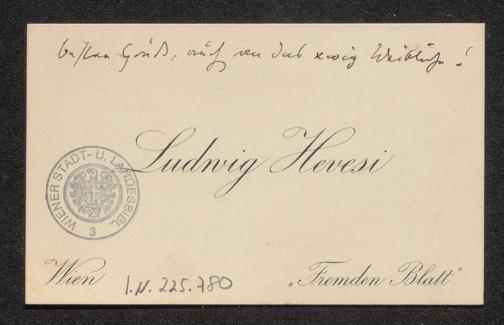 besten Gruß, auch an das ewig Weibliche!
Ludwig Hevesi
WIENER STADT- U. LANDESBIBL.
3
Wien
I.N. 225.780
„Fremden Blatt"